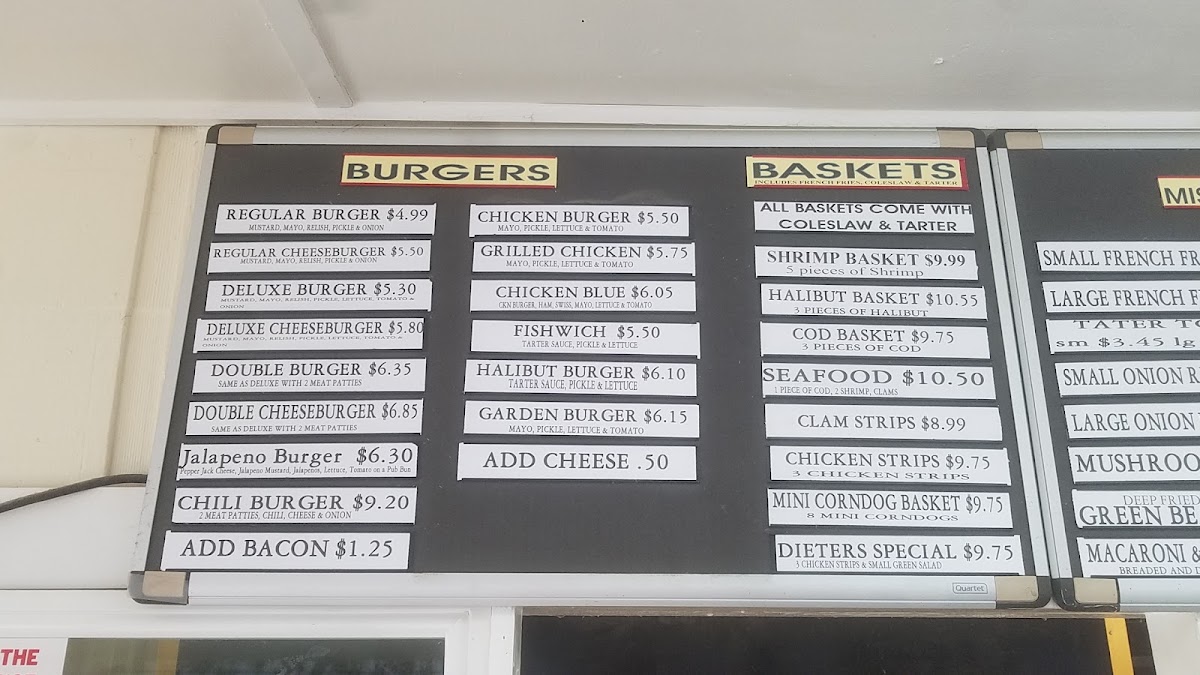 BURGERS
REGULAR BURGER $4.99
MUSTARD, MAYO, RELISH, PICKLE & ONION
REGULAR CHEESEBURGER $5.50
MUSTARD, MAYO, RELISH, PICKLE & ONION
DELUXE BURGER $5.30
MUSTARD, MAYO, RELISH, PICKLE, LETTUCE, TOMATO &
ONION
DELUXE CHEESEBURGER $5.80
MUSTARD, MAYO, RELISH, PICKLE, LETTUCE, TOMATO &
ONION
DOUBLE BURGER $6.35
SAME AS DELUXE WITH 2 MEAT PATTIES
DOUBLE CHEESEBURGER $6.85
SAME AS DELUXE WITH 2 MEAT PATTIES
Jalapeno Burger $6.30
Pepper Jack Cheese, Jalapeno Mustard, Jalapenos, Lettuce, Tomato on a Pub Bun
CHILI BURGER $9.20
2 MEAT PATTIES, CHILI, CHEESE & ONION
ADD BACON $1.25
CHICKEN BURGER $5.50
MAYO, PICKLE, LETTUCE & TOMATO
GRILLED CHICKEN $5.75
MAYO, PICKLE, LETTUCE & TOMATO
CHICKEN BLUE $6.05
CKN BURGER, HAM, SWISS, MAYO, LETTUCE & TOMATO
FISHWICH $5.50
TARTER SAUCE, PICKLE & LETTUCE
HALIBUT BURGER $6.10
TARTER SAUCE, PICKLE & LETTUCE
GARDEN BURGER $6.15
MAYO, PICKLE, LETTUCE & TOMATO
ADD CHEESE .50
BASKETS
INCLUDES FRENCH FRIES, COLESLAW & TARTER
ALL BASKETS COME WITH
COLESLAW & TARTER
SHRIMP BASKET $9.99
5 pieces of Shrimp
HALIBUT BASKET $10.55
3 PIECES OF HALIBUT
COD BASKET $9.75
3 PIECES OF COD
SEAFOOD $10.50
1 PIECE OF COD, 2 SHRIMP, CLAMS
CLAM STRIPS $8.99
CHICKEN STRIPS $9.75
3 CHICKEN STRIPS
MINI CORNDOG BASKET $9.75
8 MINI CORNDOGS
DIETERS SPECIAL $9.75
3 CHICKEN STRIPS & SMALL GREEN SALAD
Quartet
MIS
SMALL FRENCH FR
LARGE FRENCH F
TATER TO
sm $3.45 lg
SMALL ONION R
LARGE ONION
MUSHROO
DEEP FRIED
GREEN BE
MACARONI &
BREADED AND D
THE